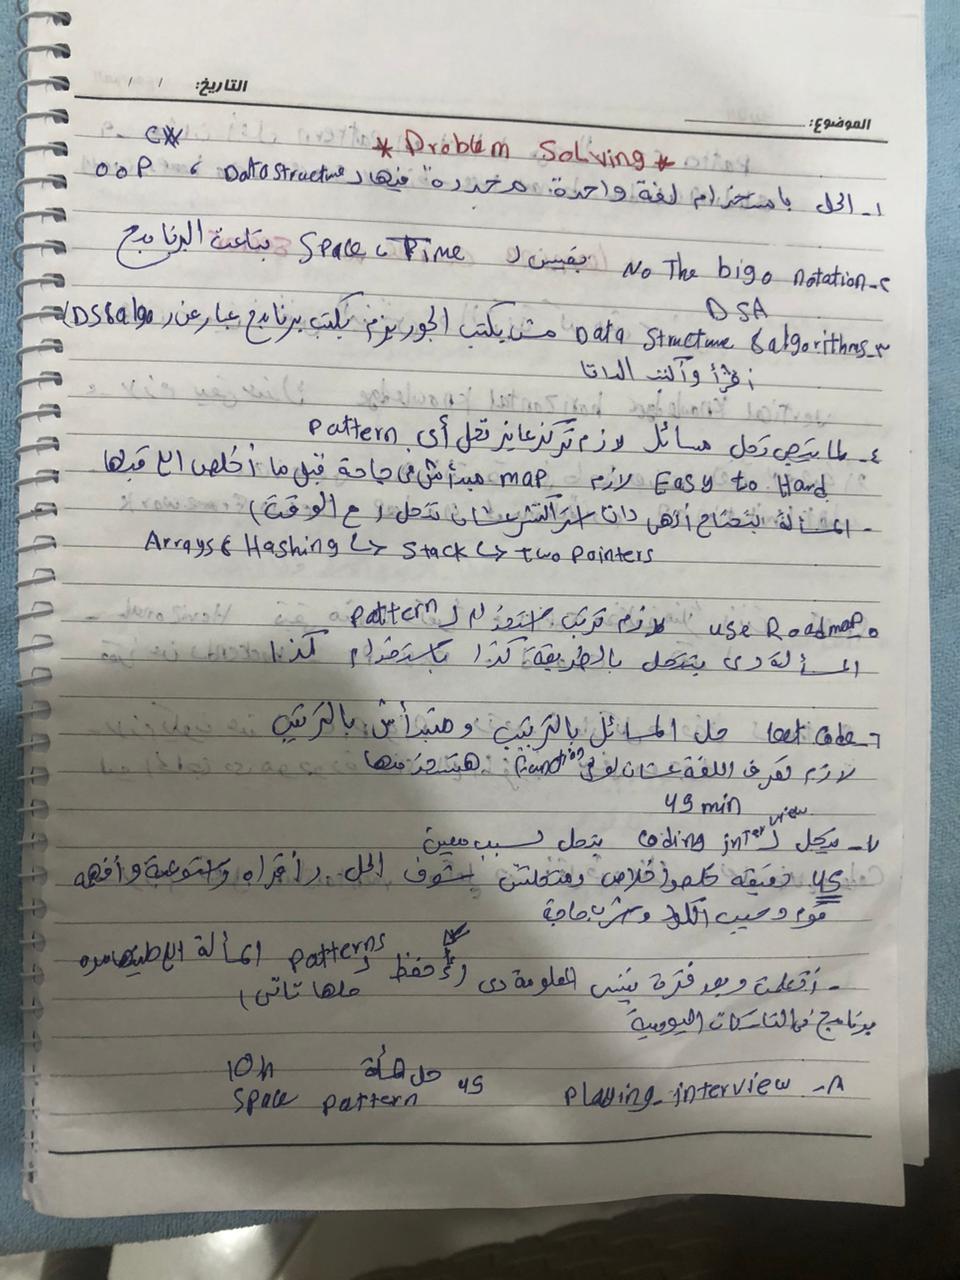 التاريخ: / /
الموضوع:
* Problem Solving *
C#
١- الحل باستخدام لغة واحدة محددة فيها Data structure ، OOP
٢- No The big o notation بقيس ل Time ، Space بتاعت البرنامج
DSA
٣- Data Structure & algorithms مش بكتب الجوريزم بكتب برنامج عبارة عن (DS & algo)
أقرأ وأكتب الداتا
٤- لما تيجي تحل مسائل لازم تركز عايز تحل أي pattern
Easy to Hard لازم map مبدأش في حاجة قبل ما أخلص اللي قبلها
- المسألة بتحتاج أنهى داتا استراكتشر عشان تتحل (مع الوقت)
Arrays & Hashing ↳ Stack ↳ two pointers
٥- use Roadmap لازم ترتب استخدام ل pattern
المسألة دى بتتحل بالطريقة كذا باستخدام كذا
٦- leet code حل المسائل بالترتيب ومتبدأش بالترتيب
لازم تعرف اللغة عشان لو في function هتستخدمها
45 min
٧- بتحل ل coding interview بتحل لسبب معين
45 دقيقة خلصوا خلاص ومتحلتش بشوف الحل (أقرأه وأستوعبه وأفهمه
قوم وسيب الكود وشرب حاجة
- اتعلمت وبعد فترة بنسى المعلومة دى (أحفظ ل patterns المسألة اللي حليتها مره
حلها تانى)
برنامج في التاسكات اليومية
٨- Playing-interview 45 حل مسألة 10h
pattern Space